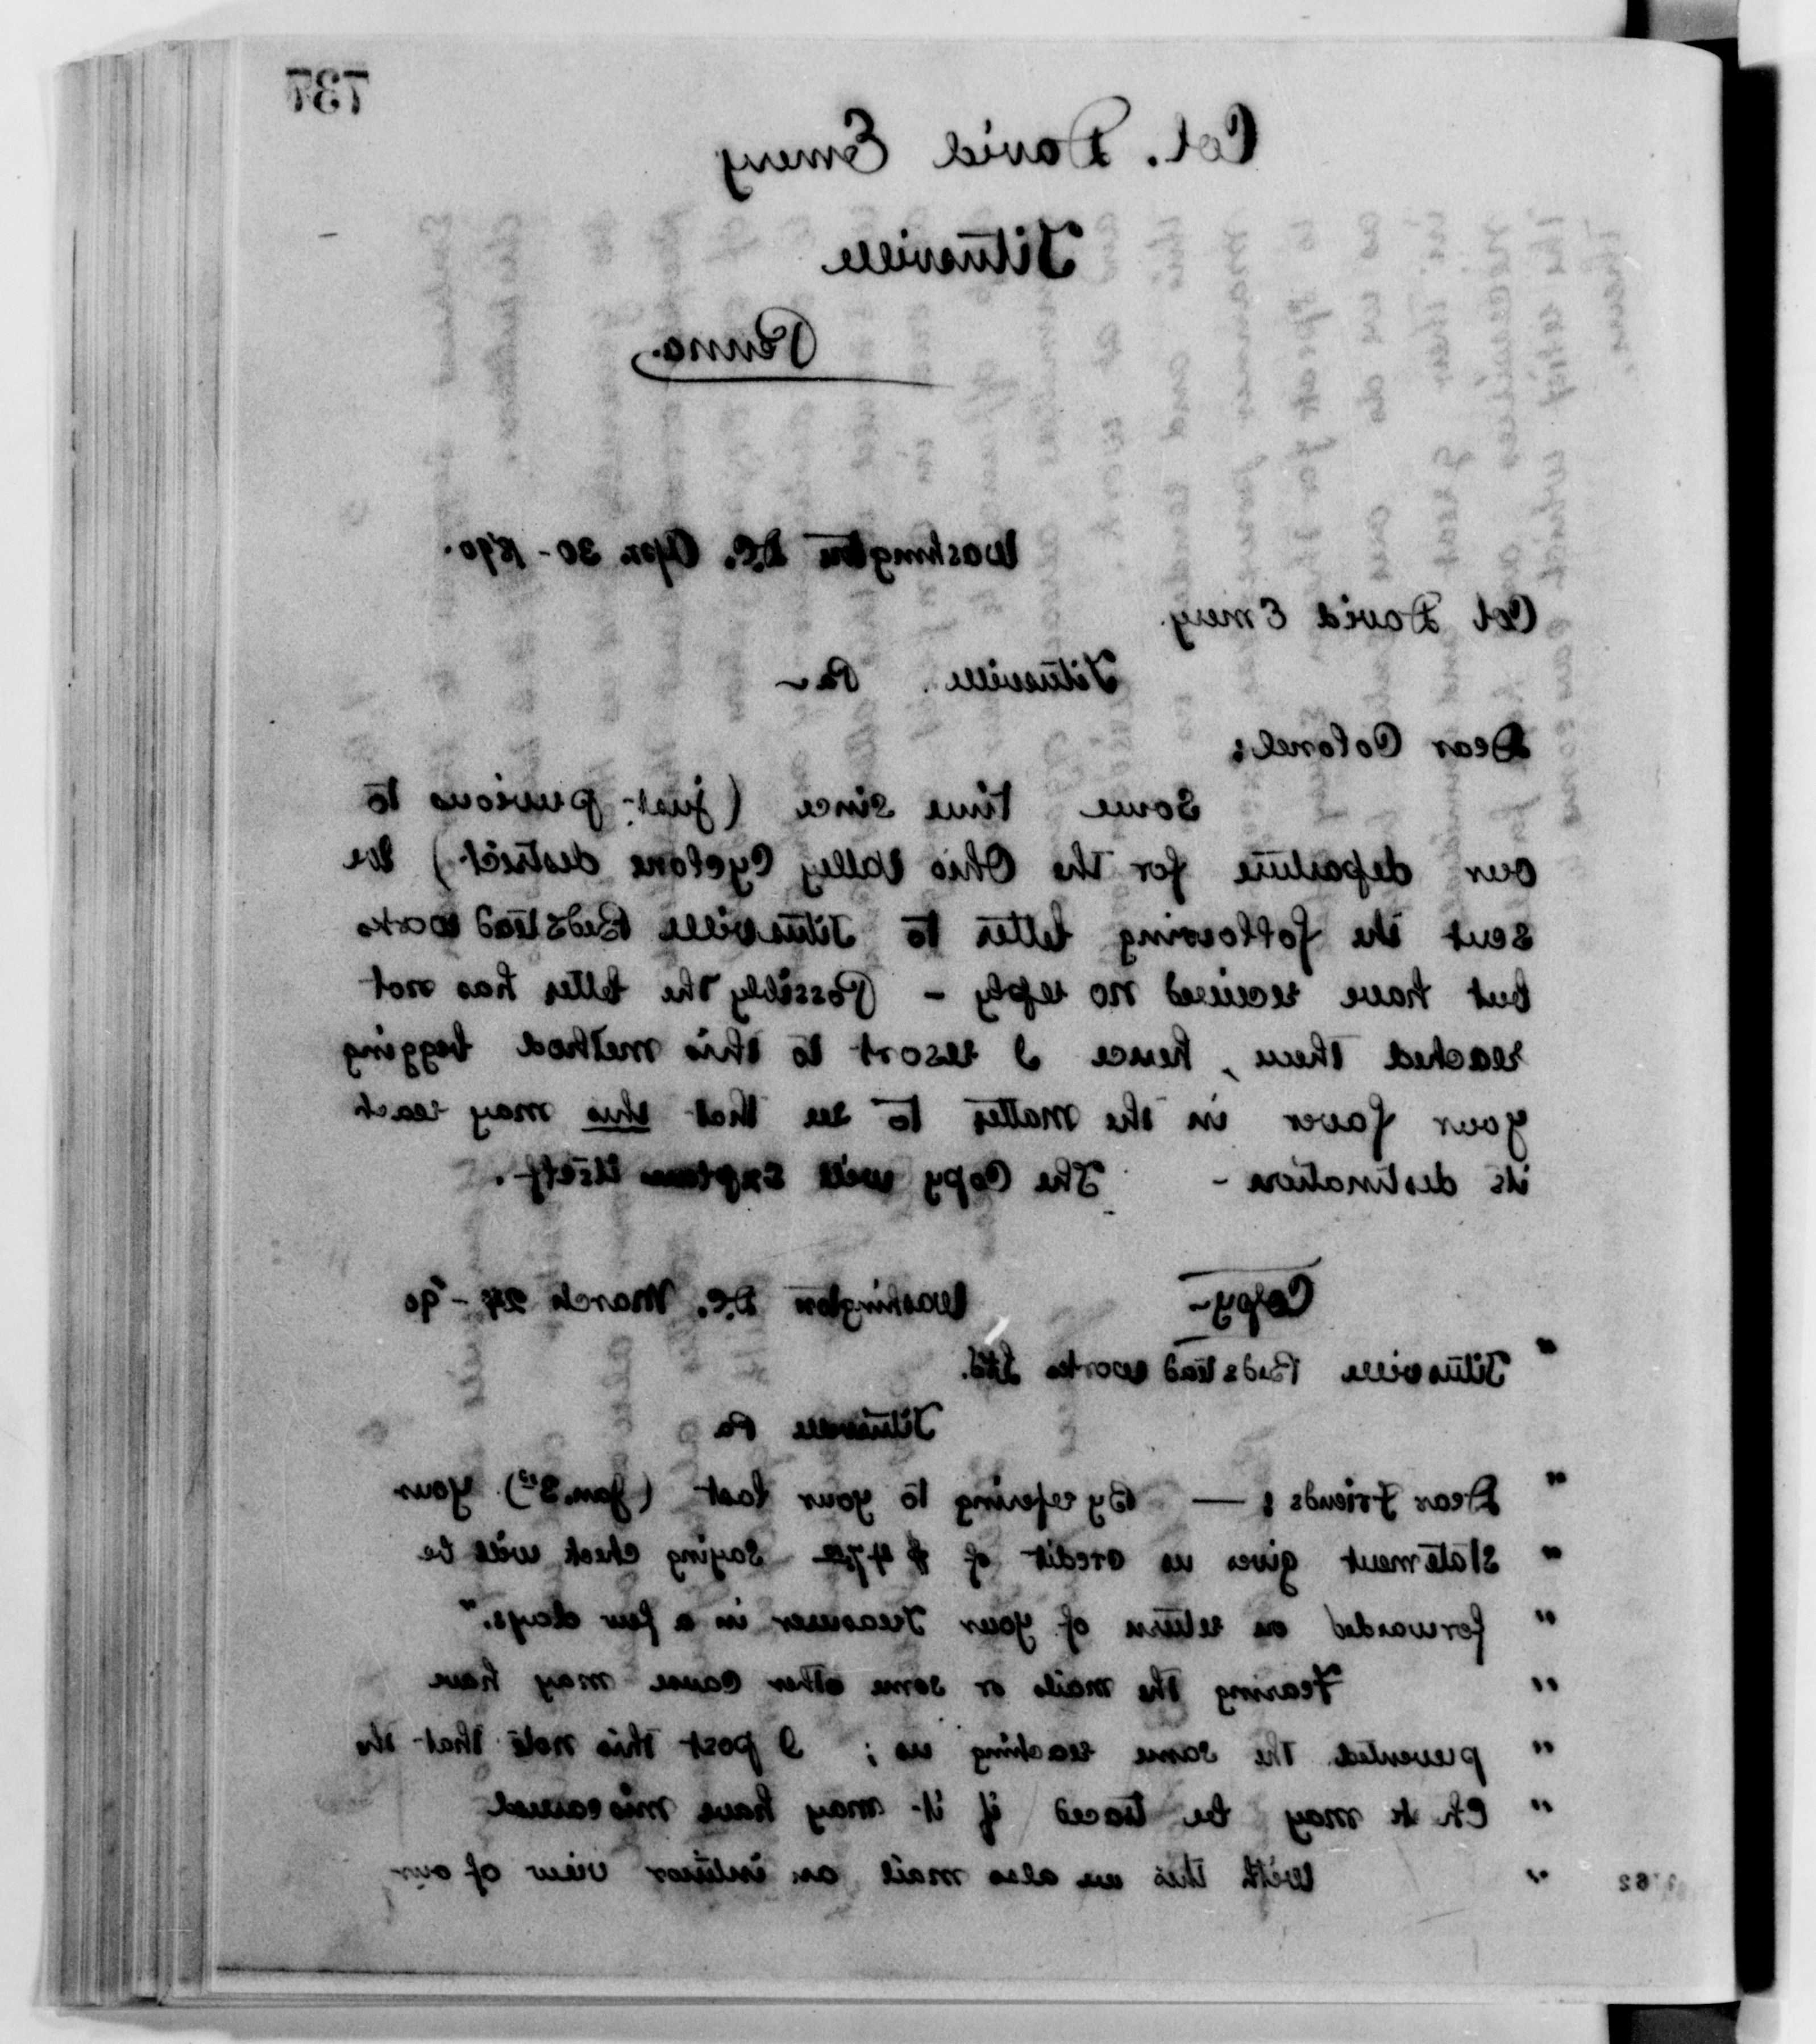 737
Col. David Emery
Titusville
Penna.
Washington D.C. Apr. 30 - 1890.
Col David Emery.
Titusville, Pa -
Dear Colonel;
Some time since (just previous to
our departure for the Ohio Valley Cyclone district) we
sent the following letter to Titusville Bedstead works
but have received no reply - Possibly the letter has not
reached them, hence I resort to this method begging
your favor in the matter to see that this may reach
its destination - The Copy will explain itself.
Copy - Washington D.C. March 24 - 90
" Titusville Bedstead works Ltd.
Titusville Pa
" Dear Friends; — By refering to your last (Jan. 3rd) your
" statement gives us credit of $ saying check will be
" forwarded on return of your Treasurer in a few days."
" Fearing the mails or some other cause may have
" prevented the same reaching us; I post this note that the
" Ch'k may be traced if it may have miscarried
" With this we also mail an interior view of our